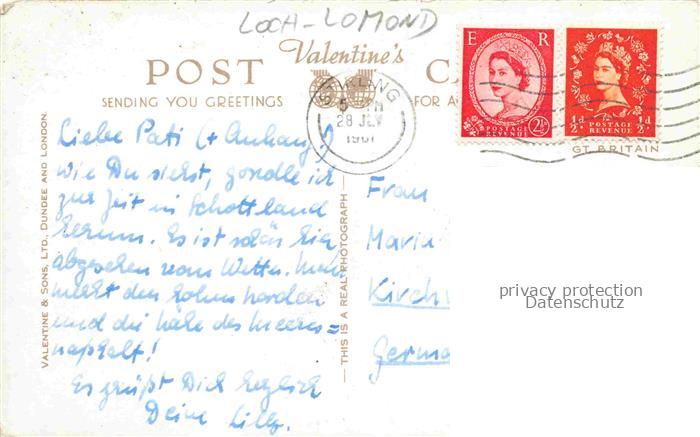 LOCH-LOMOND
Valentine's
POST CA
SENDING YOU GREETINGS FOR A
STIRLING
5 PM
28 JLY
1961
E R
POSTAGE REVENUE 2½D
½d POSTAGE REVENUE ½d
GT BRITAIN
VALENTINE & SONS, LTD., DUNDEE AND LONDON.
THIS IS A REAL PHOTOGRAPH
Liebe Pati (+ Anhang!)
wie Du siehst, gondle ich
zur Zeit in Schottland
herum. Es ist schön hier
abgesehen vom Wetter. Man
merkt den hohen Norden
und die Nähe des Meeres=
asphalt!
Es grüßt Dich herzlich
Deine Lilly.
Frau
Maria
Kirch
Germa
privacy protection
Datenschutz